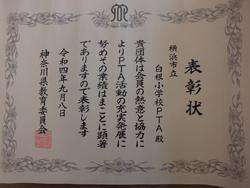 表彰状
横浜市立
白根小学校PTA殿
貴団体は会員の熱意と協力に
よりPTA活動の充実発展に
努めその業績はまことに顕著
でありますので表彰します
令和四年九月八日
神奈川県教育委員会